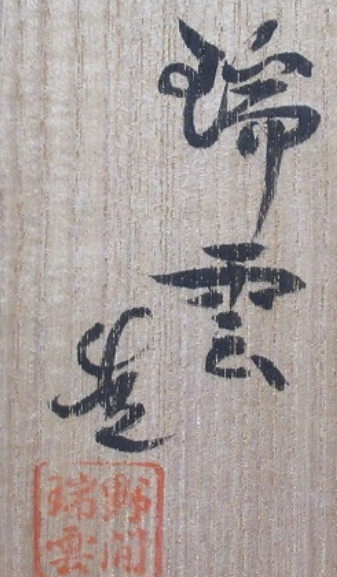 瑞雲
野間
瑞雲